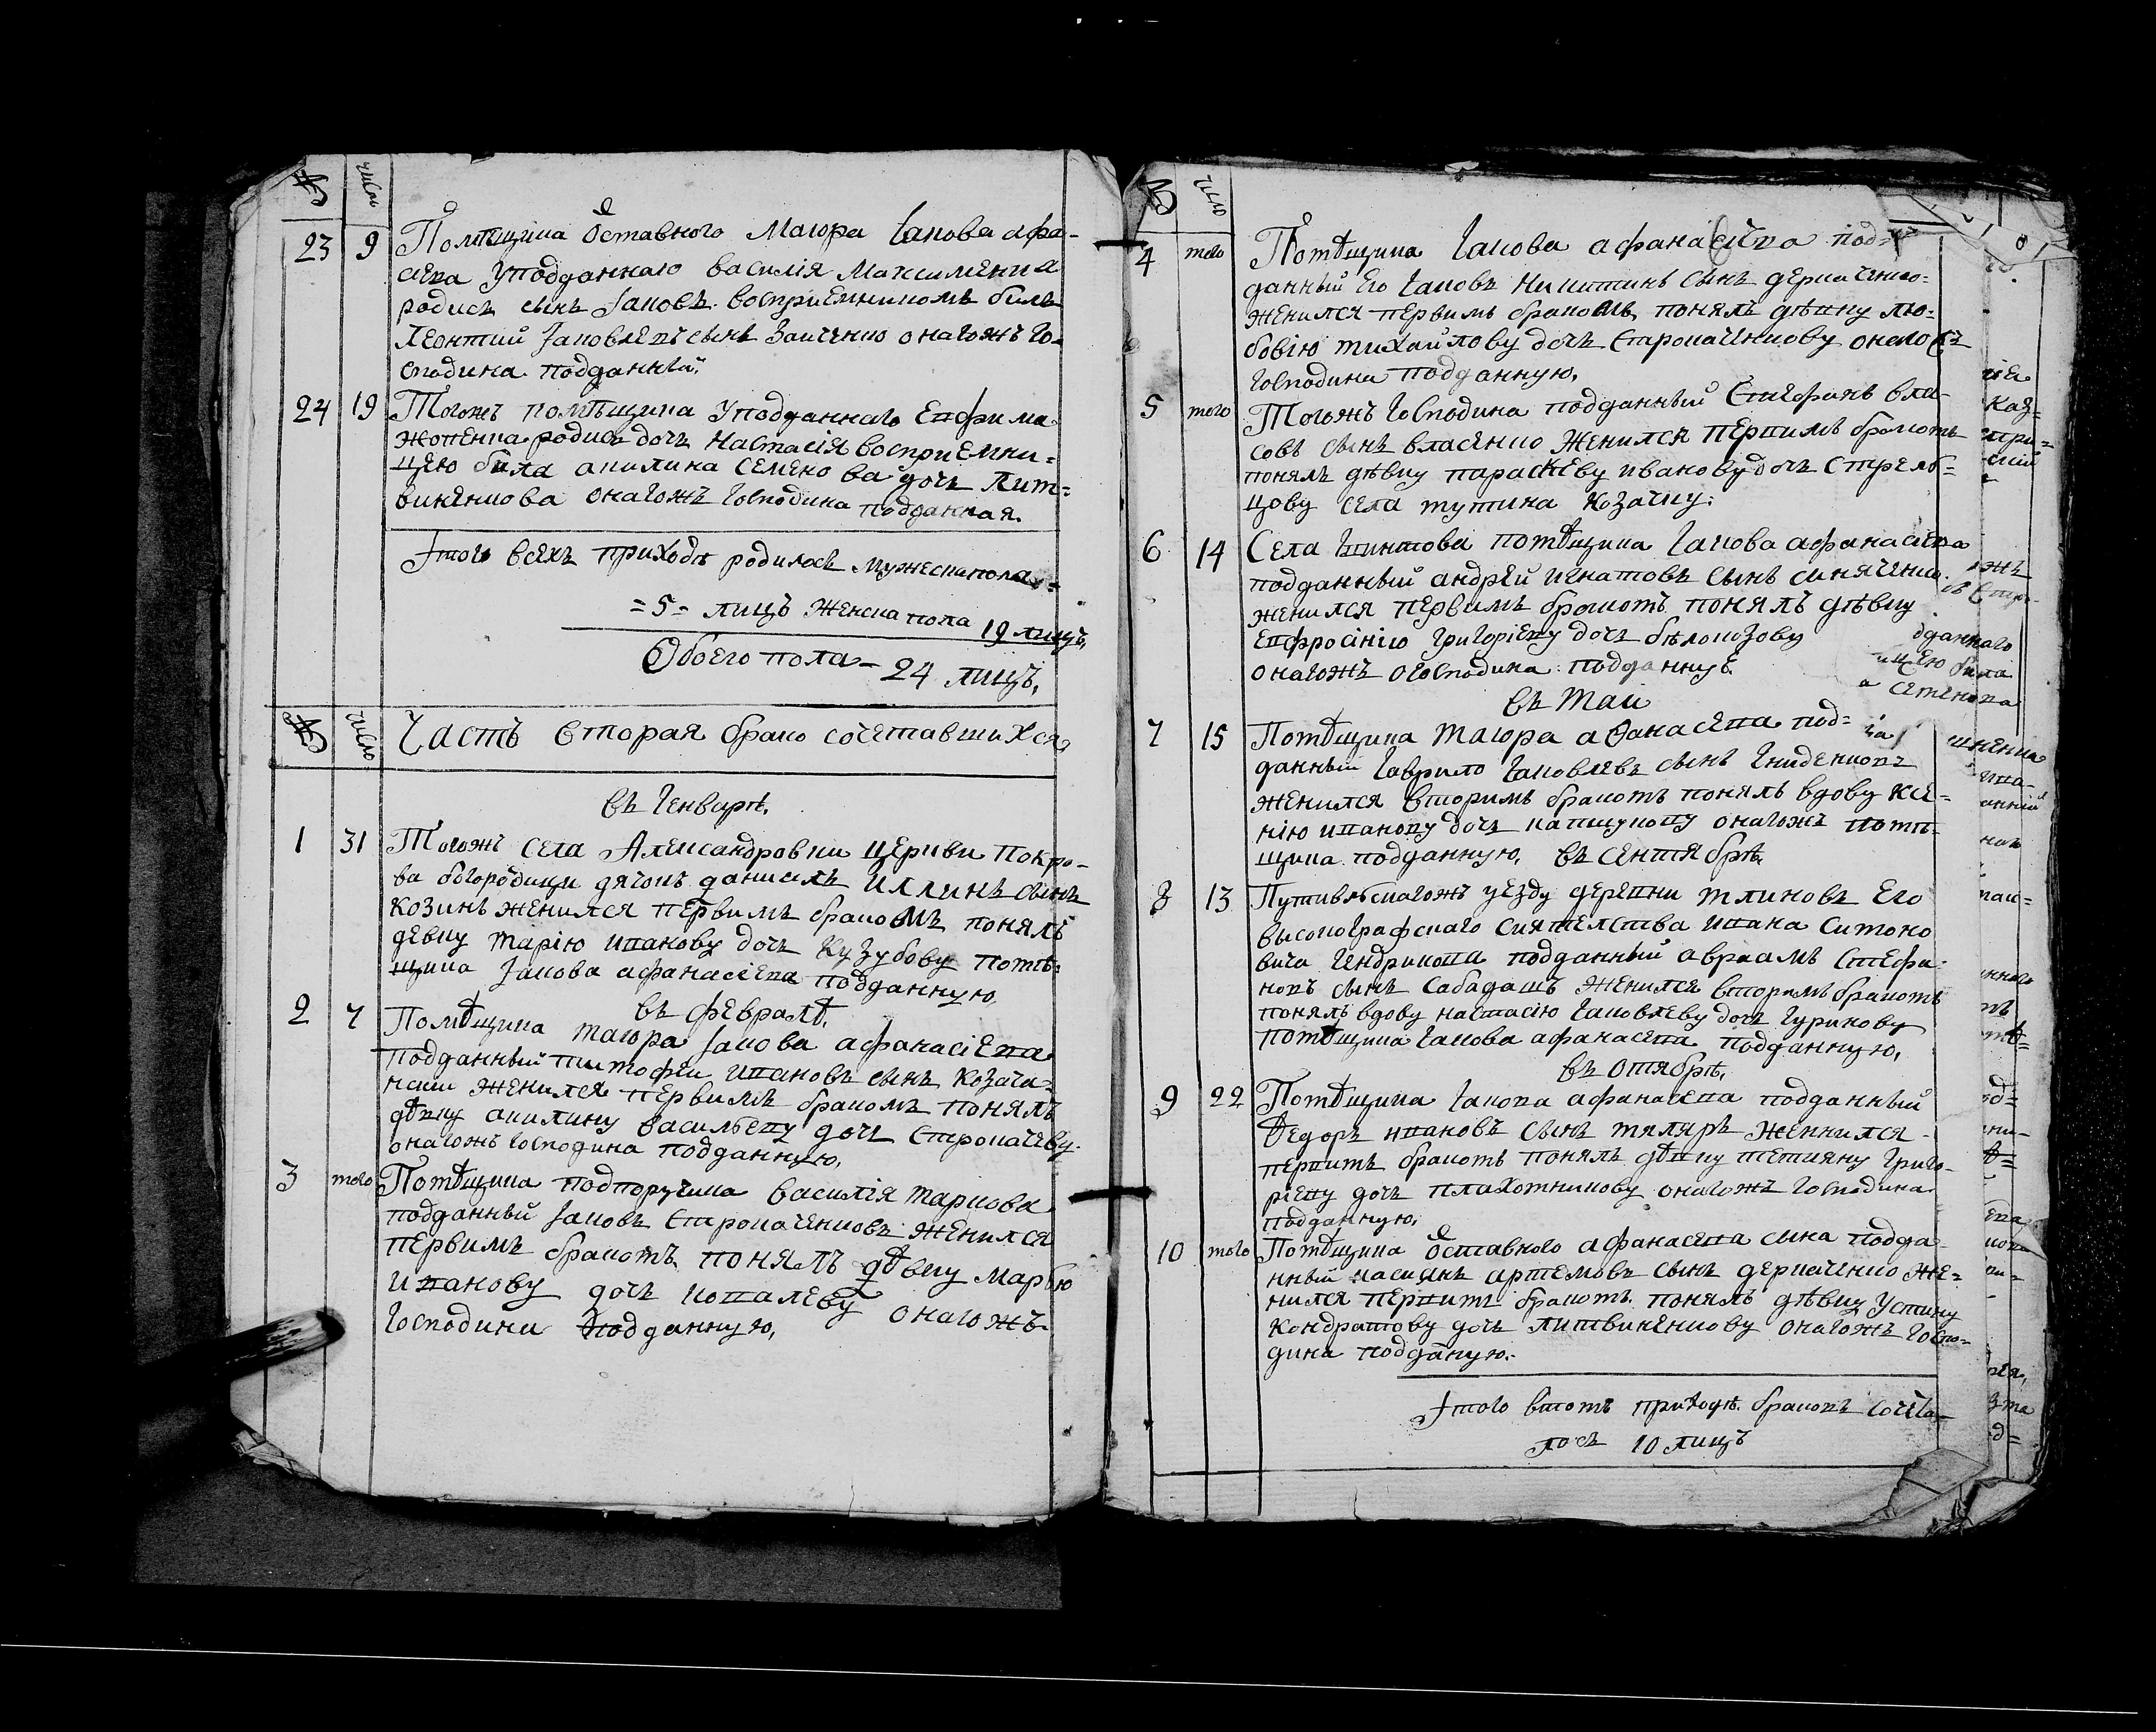 № число
23 9 Помѣщика Ѿставного Маіора Іакова афа-
сіева Уподданнаго василія Максименка
родися сынъ Іаковъ воспріемникомъ билъ
Леонтий Іаковлевъ сынъ Заиченко онагожъ го-
сподина подданный.
24 19 Тогожъ помѣщика Уподданнаго Евфима
родися дочъ Настасія воспріемни-
цею била акилина семенова дочъ Лит-
виненкова онагожъ господина подданная.
Итого всехъ приходѣ родилось мужеска пола
= 5 = лицъ женска пола 19 лицъ,
Обоего пола - 24 лицъ,
№ число Часть вторая брако сочетавшихся
въ Генварѣ,
1 31 Тогожъ села Александровки церкви Покро-
ва богородици дячокъ данислъ иллинъ сынъ
козинъ женился первимъ бракомъ понялъ
девку марію иванову дочъ кузубову помѣ-
щика Іакова афанасіева подданную,
въ февралѣ,
2 7 Помѣщика маіора Іакова афанасіева
подданный тимофеи ивановъ сынъ козача-
женился первимъ бракомъ понялъ
дѣвку акилину васильеву дочъ строкачеву
онагожъ господина подданную,
3 того Помѣщика подпоручика василія маркова
подданный Іаковъ строкаченковъ женился
первимъ бракомъ понялъ дѣвку марбю
иванову дочъ ковалеву онагожъ
господина подданную,
№ число
4 того Помѣщика Іакова афанасіева под-
данный его Іаковъ никитинъ сынъ деркаченко-
женился первимъ бракомъ понялъ дѣвку лю-
бовію михайлову дочъ строкаченкову онаго жъ
господина подданную,
5 того Тогожъ господина подданный Стефанъ вла-
совъ сынъ власенко женился первимъ бракомъ
понялъ дѣвку параскеву иванову дочъ стрелб-
цову села мутина козачку.
6 14 Села помѣщика Іакова афанасіева
подданный андрей игнатовъ сынъ синяченко
женился первимъ бракомъ понялъ дѣвку
евфросінію григоріеву дочъ бѣлокозову
онагожъ господина подданную
въ Маи
7 15 Помѣщика маіора аѳанасева под-
данный гаврило Іаковлевъ сынъ гниденковъ
женился вторимъ бракомъ понялъ вдову ксе-
нію иванову дочъ кашукову онагожъ помѣ-
щика подданную, въ сентябрѣ
8 13 Путивлъскагожъ уезду деревни млиновъ Его
високографскаго сиятелства ивана симоно
вича гендрикова подданный авраамъ стефа-
новъ сынъ сабадашъ женился вторимъ бракомъ
понялъ вдову настасію Іаковлеву дочъ гуринову
помѣщика Іакова афанасева подданную,
въ октябрѣ,
9 22 Помѣщика Іакова афанасева подданный
Ѳедоръ ивановъ сынъ маляръ женился
первимъ бракомъ понялъ дѣвку тетияну григо-
ріеву дочъ плахотникову онагожъ господина
подданную,
10 того Помѣщика Ѿставного афанасева сына подда
нный касиянъ артемовъ сынъ деркаченко же-
нился первимъ бракомъ понялъ дѣвку Устину
кондратову дочъ литвиненкову онагожъ госпо-
дина подданую.
Итого втомъ приходѣ браковъ сочета-
лось 10 лицъ